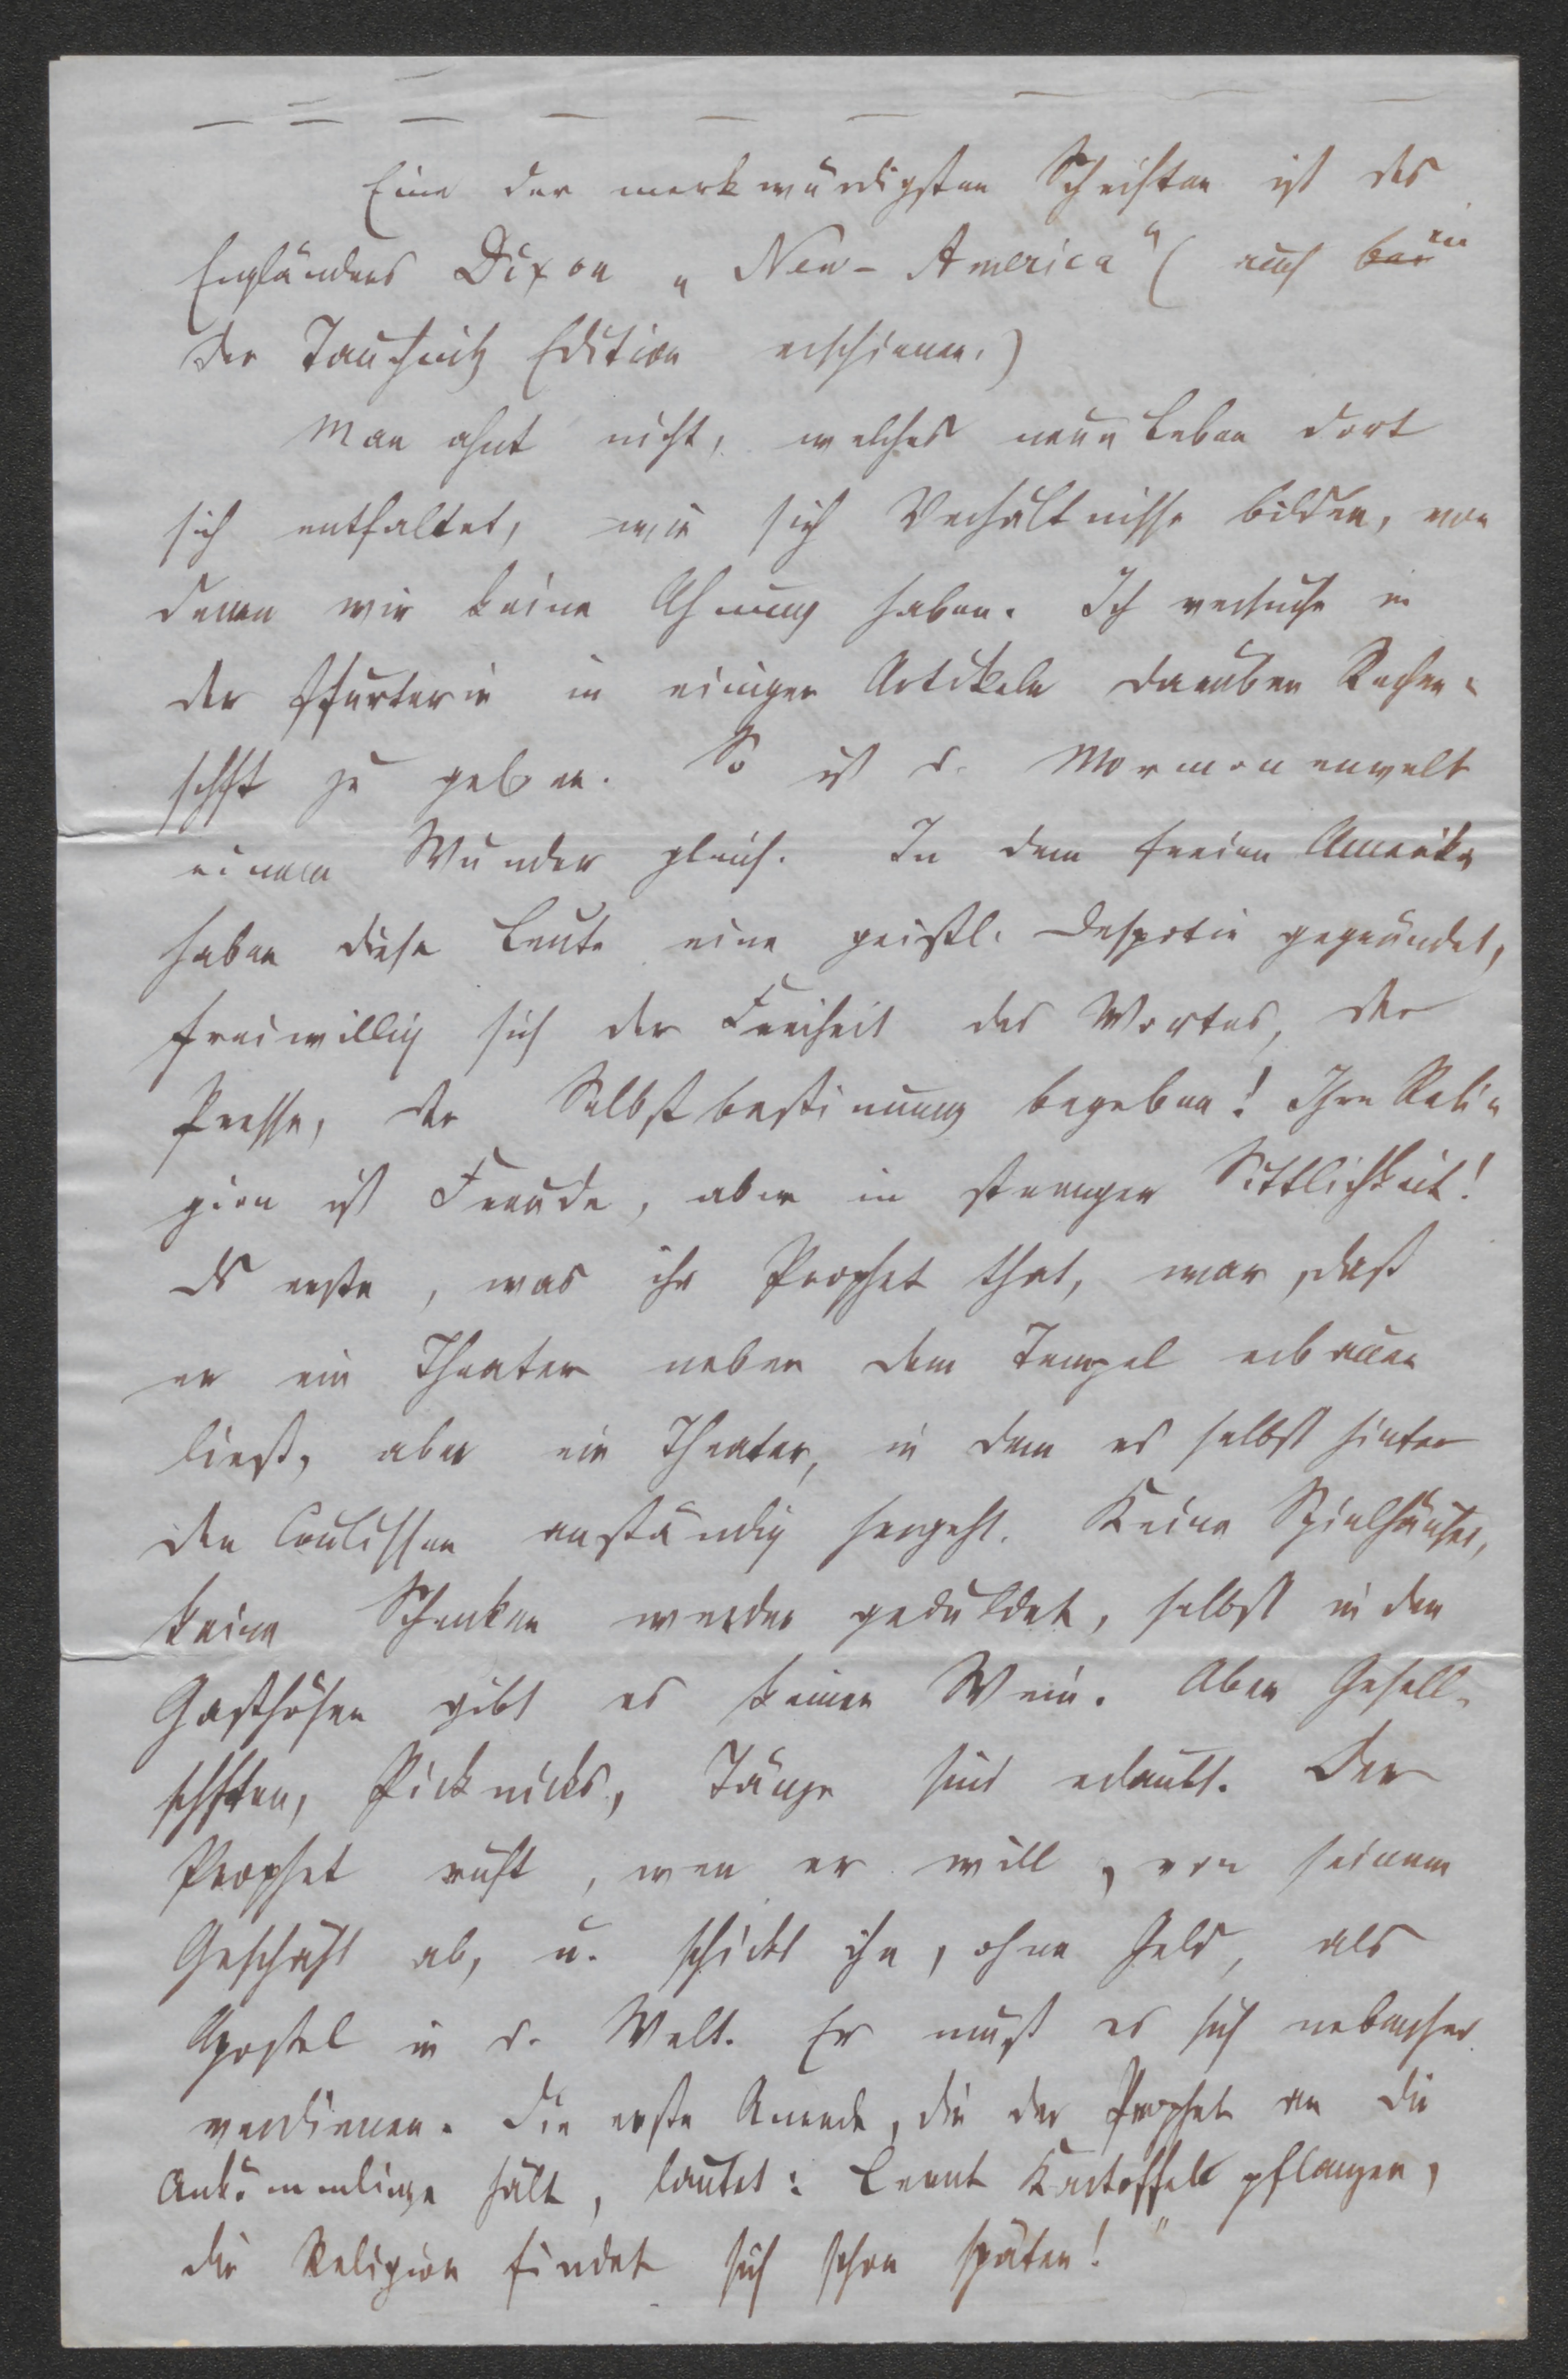 — = — — — — — — —
Eine der merkwürdigsten Schriften ist des
Engländers Dixon „New-America" (auch bei in
der Tauchnitz Edition erschienen.)
Man ahnt nicht, welches neue Leben dort
sich entfaltet, wie sich Verhältnisse bilden, von
denen wir keine Ahnung haben. Ich versuche in
der in einigen Artikeln darüber Rechen-
schft zu geben. So ist d. Mormonenwelt
einem Wunder gleich. In dem freien Amerika
haben diese Leute eine geistl. Despotie gegründet,
freiwillig sich der Freiheit des Wortes, der
Presse, der Selbstbestimung begeben! Ihre Reli-
gion ist Freude, aber in strenger Sittlichkeit!
Ds erste, was ihr Prophet that, war, daß
er ein Theater neben dem Tempel erbauen
ließ, aber ein Theater, in dem es selbst hinter
den Coulissen anständig hergeht. Keine Spielhäuser,
keine Schenken werden geduldet, selbst in den
Gasthöfen gibt es keinen Wein. Aber Gesell-
schften, Picknicks, Tänze sind erlaubt. Der
Prophet ruft, wen er will, von seinem
Geschäft ab, u. schickt ihn, ohne Geld, als
Apostel in d. Welt. Er muß es sich nebenher
verdienen. Die erste Anrede, die der Prophet an die
Ankömmlinge hält, lautet: Lernt Kartoffeln pflanzen,
die Religion findet sich schon später!"